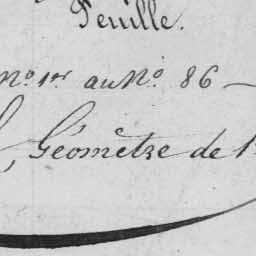 Feuille.
N.º 1.er au N.º 86 —
, Géomètre de 1